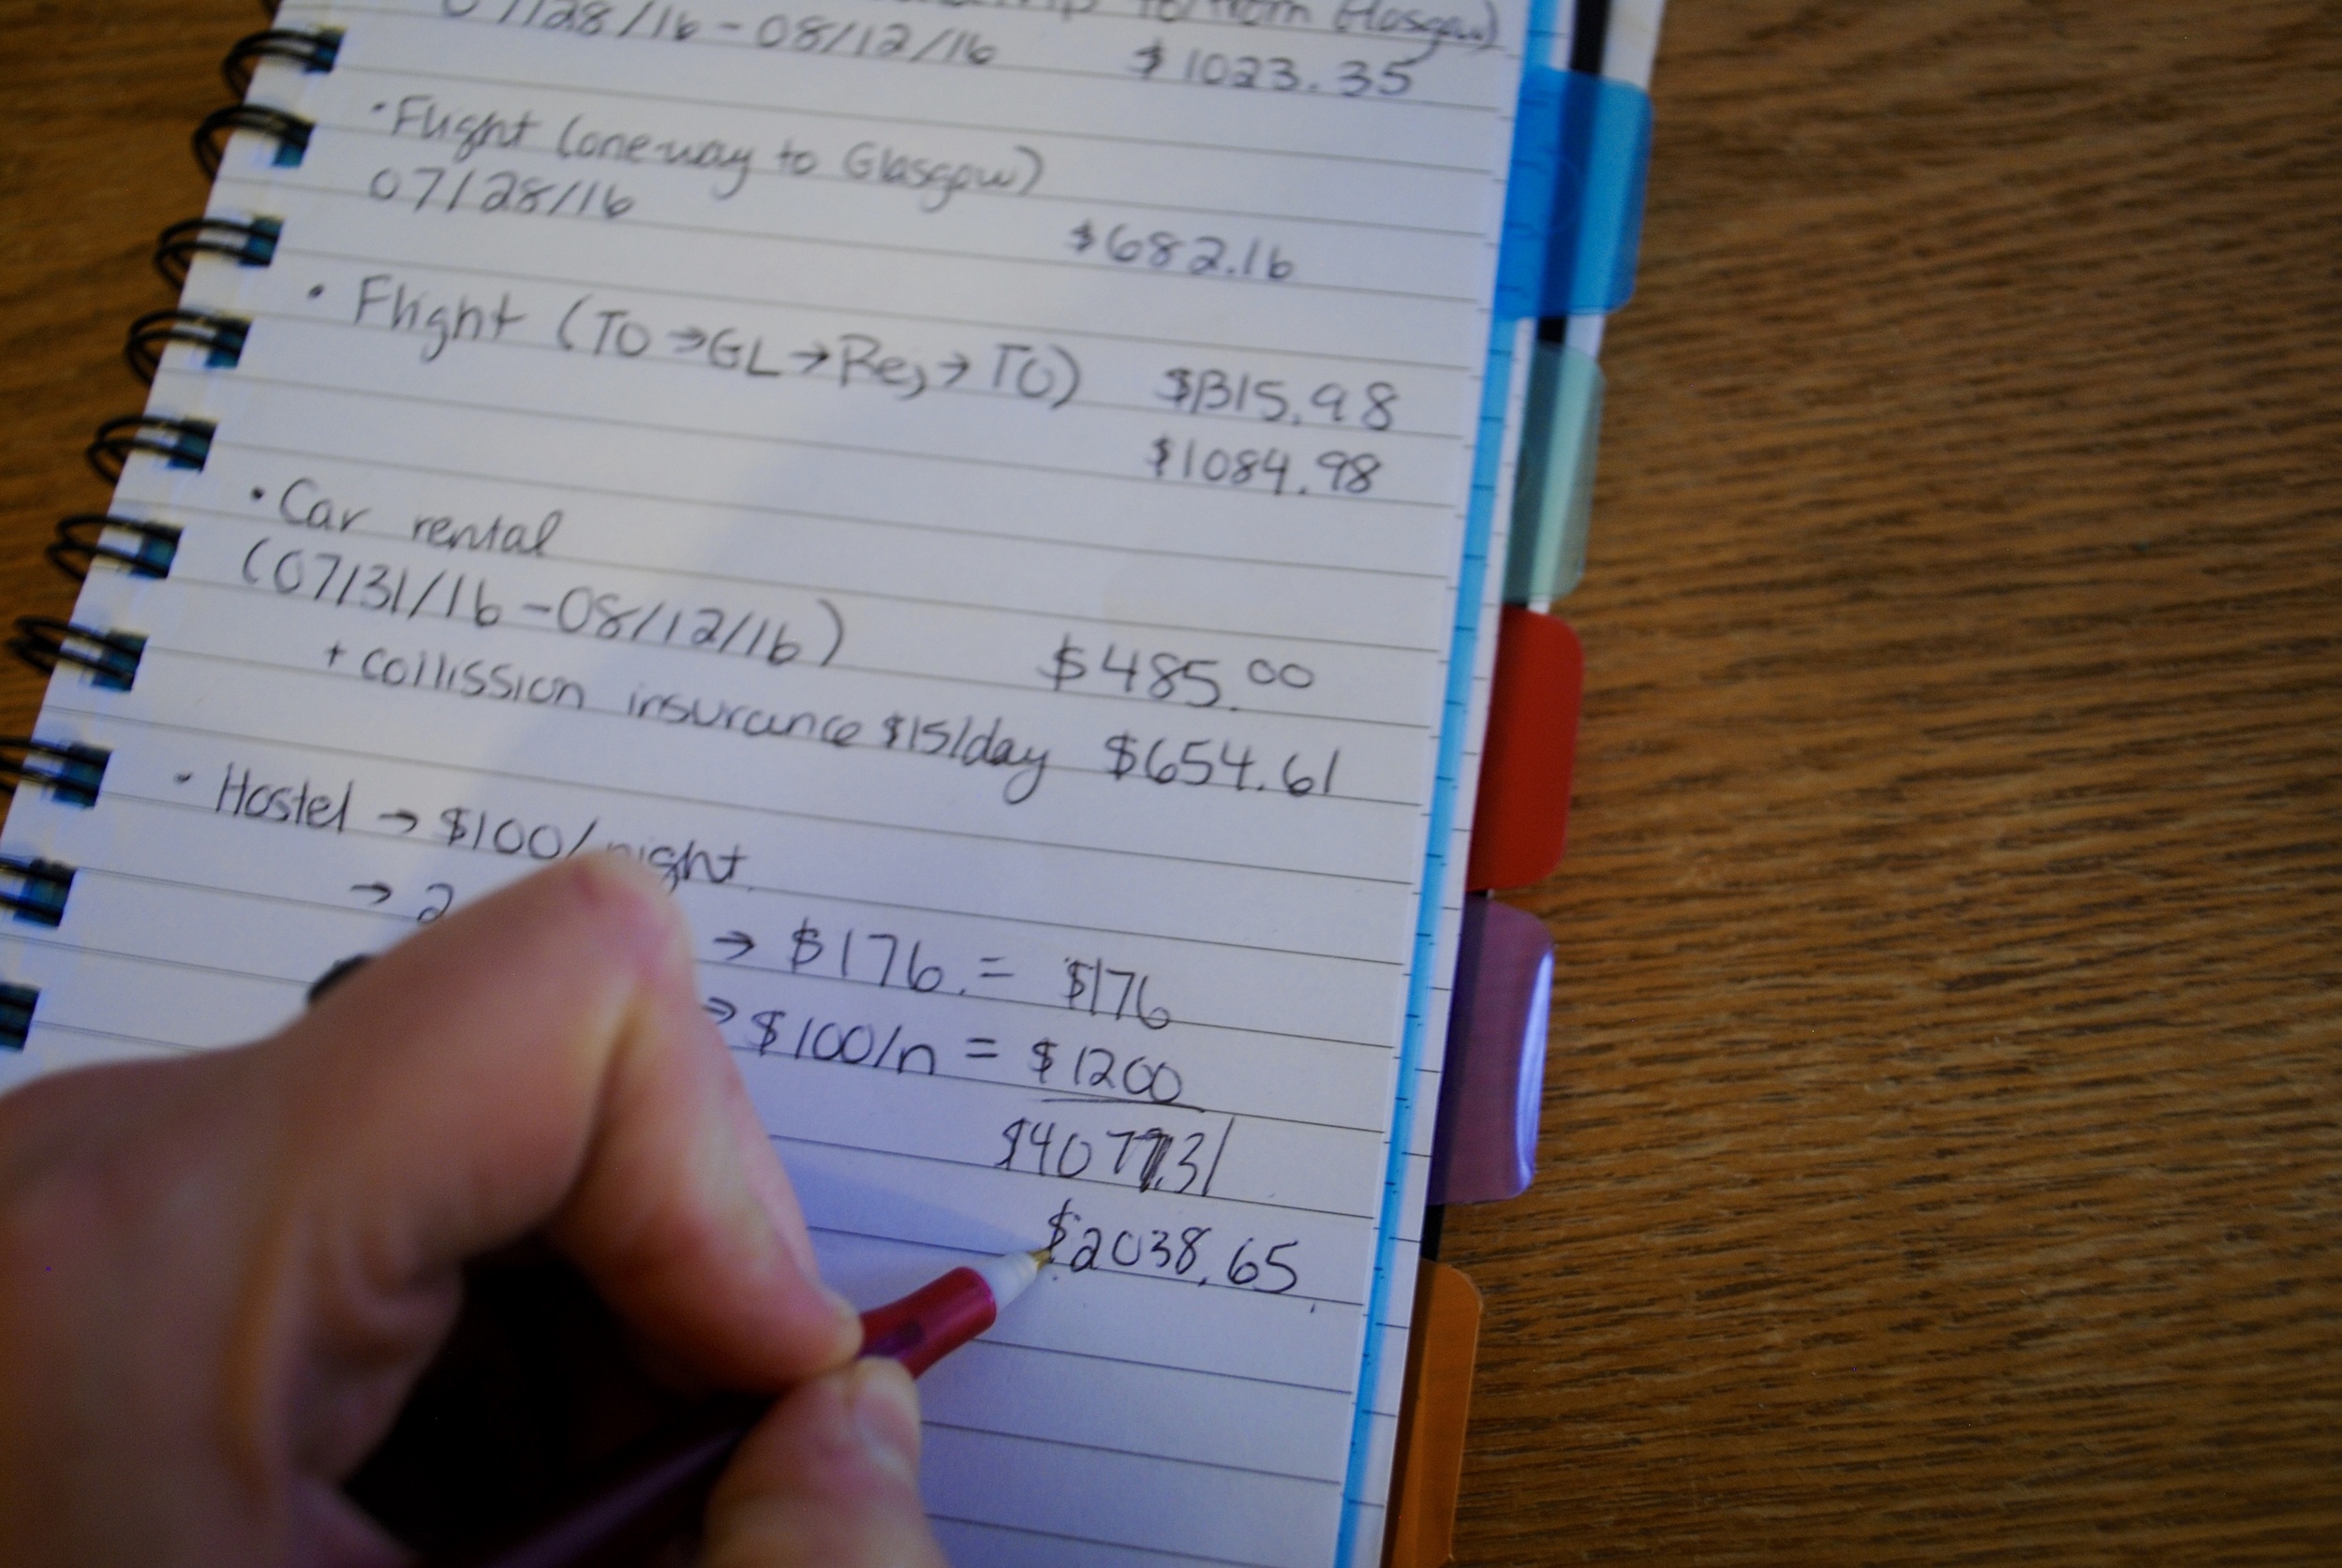 to/from Glasgow)
07/28/16 - 08/12/16 $1023.35
• Flight (one-way to Glasgow)
07/28/16
$682.16
• Flight (TO → GL → Rey → TO) $1315.98
$1084.98
• Car rental
(07/31/16 - 08/12/16) $485.00
+ collission insurance $15/day $654.61
• Hostel → $100/night
→ 2 → $176. = $176
→ $100/n = $1200
$4077.31
$2038.65